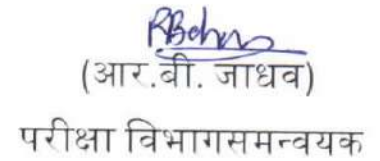 (आर.बी. जाधव)
परीक्षा विभागसमन्वयक